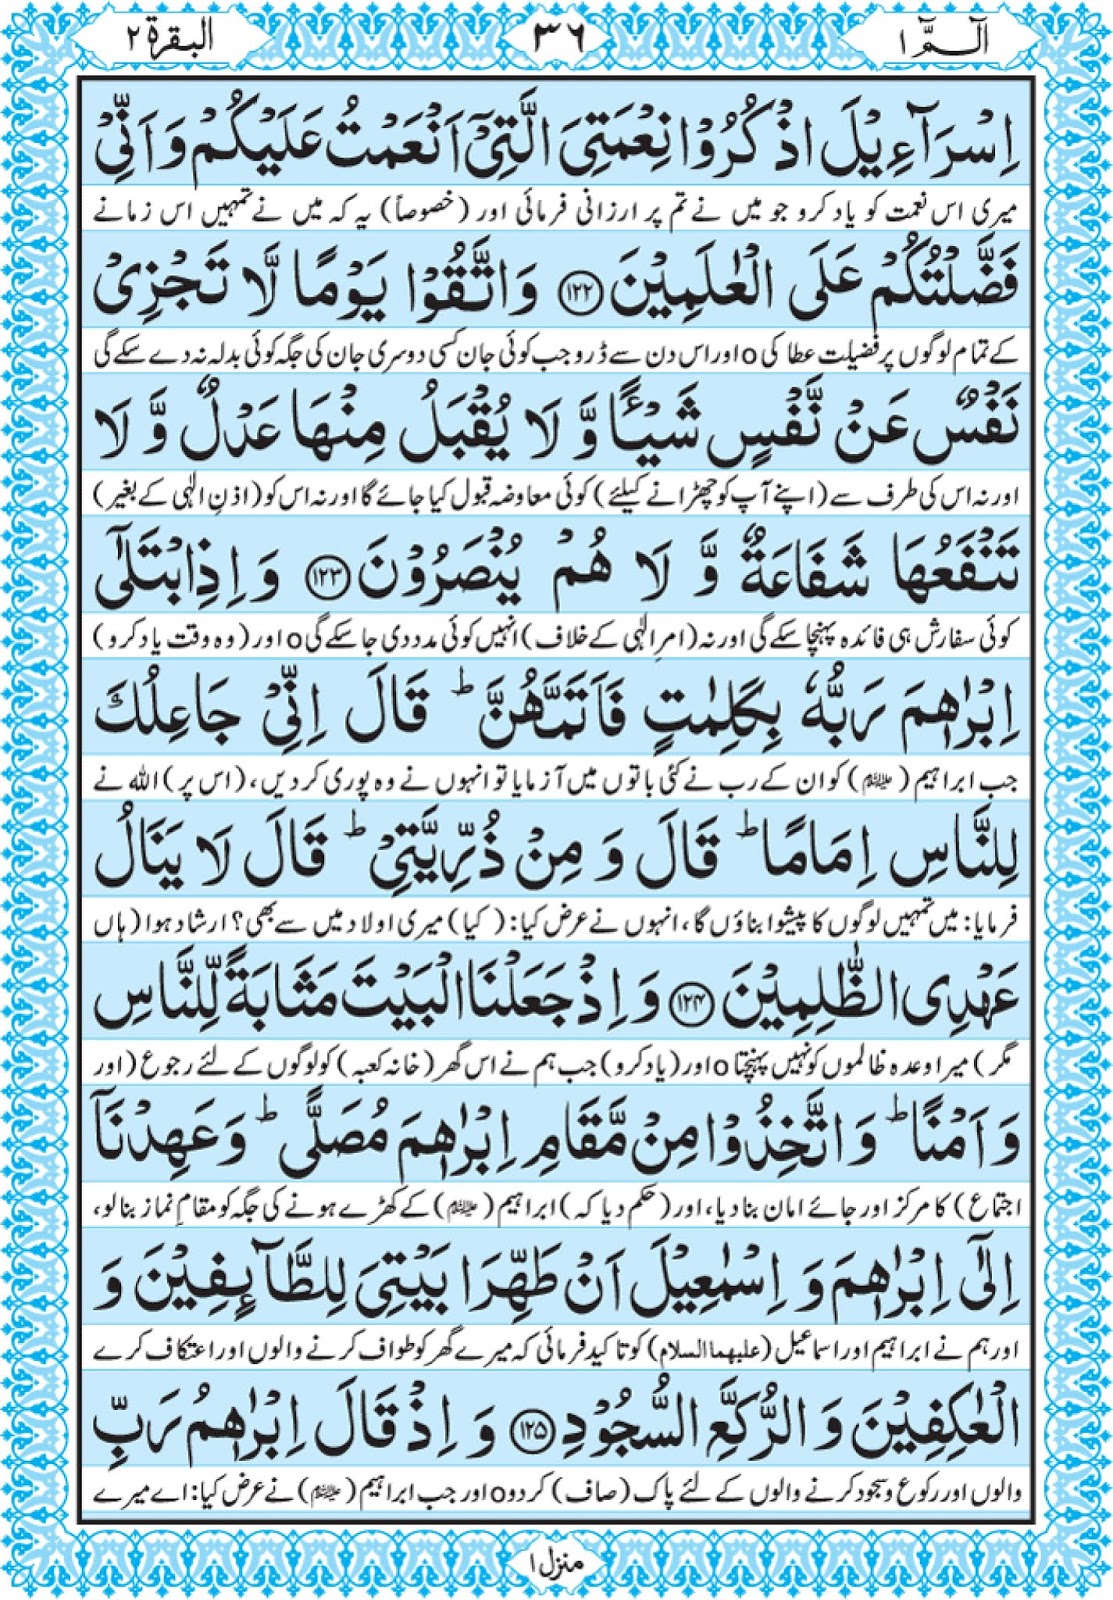 الٓـمّٓ ١
٣٦
البقرة ٢
اِسْرَآءِیْلَ اذْكُرُوْا نِعْمَتِیَ الَّتِیْۤ اَنْعَمْتُ عَلَیْكُمْ وَ اَنِّیْ
میری اس نعمت کو یاد کرو جو میں نے تم پر ارزانی فرمائی اور (خصوصاً) یہ کہ میں نے تمہیں اس زمانے
فَضَّلْتُكُمْ عَلَی الْعٰلَمِیْنَ ﴿١٢٢﴾ وَ اتَّقُوْا یَوْمًا لَّا تَجْزِیْ
کے تمام لوگوں پر فضیلت عطا کی o اور اس دن سے ڈرو جب کوئی جان کسی دوسری جان کی جگہ کوئی بدلہ نہ دے سکے گی
نَفْسٌ عَنْ نَّفْسٍ شَیْـًٔا وَّ لَا یُقْبَلُ مِنْهَا عَدْلٌ وَّ لَا
اور نہ اس کی طرف سے (اپنے آپ کو چھڑانے کیلئے) کوئی معاوضہ قبول کیا جائے گا اور نہ اس کو (اذنِ الٰہی کے بغیر)
تَنْفَعُهَا شَفَاعَةٌ وَّ لَا هُمْ یُنْصَرُوْنَ ﴿١٢٣﴾ وَ اِذِ ابْتَلٰۤی
کوئی سفارش ہی فائدہ پہنچا سکے گی اور نہ (امرِ الٰہی کے خلاف) انہیں کوئی مدد دی جا سکے گی o اور (وہ وقت یاد کرو)
اِبْرٰهٖمَ رَبُّهٗ بِكَلِمٰتٍ فَاَتَمَّهُنَّ ؕ قَالَ اِنِّیْ جَاعِلُكَ
جب ابراہیم (علیہ السلام) کو ان کے رب نے کئی باتوں میں آزمایا تو انہوں نے وہ پوری کر دیں، (اس پر) اللہ نے
لِلنَّاسِ اِمَامًا ؕ قَالَ وَ مِنْ ذُرِّیَّتِیْ ؕ قَالَ لَا یَنَالُ
فرمایا: میں تمہیں لوگوں کا پیشوا بناؤں گا، انہوں نے عرض کیا: (کیا) میری اولاد میں سے بھی؟ ارشاد ہوا (ہاں
عَهْدِی الظّٰلِمِیْنَ ﴿١٢٤﴾ وَ اِذْ جَعَلْنَا الْبَیْتَ مَثَابَةً لِّلنَّاسِ
مگر) میرا وعدہ ظالموں کو نہیں پہنچتا o اور (یاد کرو) جب ہم نے اس گھر (خانہ کعبہ) کو لوگوں کے لئے رجوع (اور
وَ اَمْنًا ؕ وَ اتَّخِذُوْا مِنْ مَّقَامِ اِبْرٰهٖمَ مُصَلًّی ؕ وَ عَهِدْنَاۤ
اجتماع) کا مرکز اور جائے امان بنا دیا، اور (حکم دیا کہ) ابراہیم (علیہ السلام) کے کھڑے ہونے کی جگہ کو مقامِ نماز بنا لو،
اِلٰۤی اِبْرٰهٖمَ وَ اِسْمٰعِیْلَ اَنْ طَهِّرَا بَیْتِیَ لِلطَّآىِٕفِیْنَ وَ
اور ہم نے ابراہیم اور اسماعیل (علیھما السلام) کو تاکید فرمائی کہ میرے گھر کو طواف کرنے والوں اور اعتکاف کرنے
الْعٰكِفِیْنَ وَ الرُّكَّعِ السُّجُوْدِ ﴿١٢٥﴾ وَ اِذْ قَالَ اِبْرٰهٖمُ رَبِّ
والوں اور رکوع و سجود کرنے والوں کے لئے پاک (صاف) کر دو o اور جب ابراہیم (علیہ السلام) نے عرض کیا: اے میرے
منزل ١